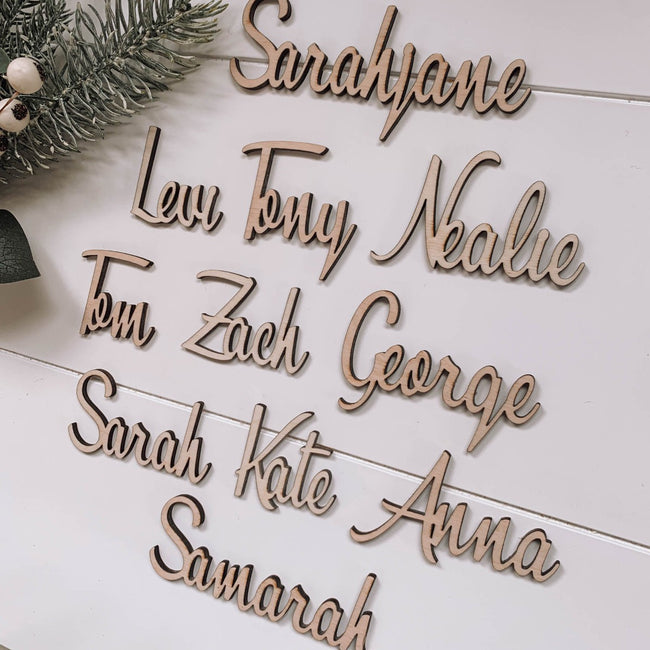 Sarahjane
Levi Tony Nealie
Tom Zach George
Sarah Kate Anna
Samarah